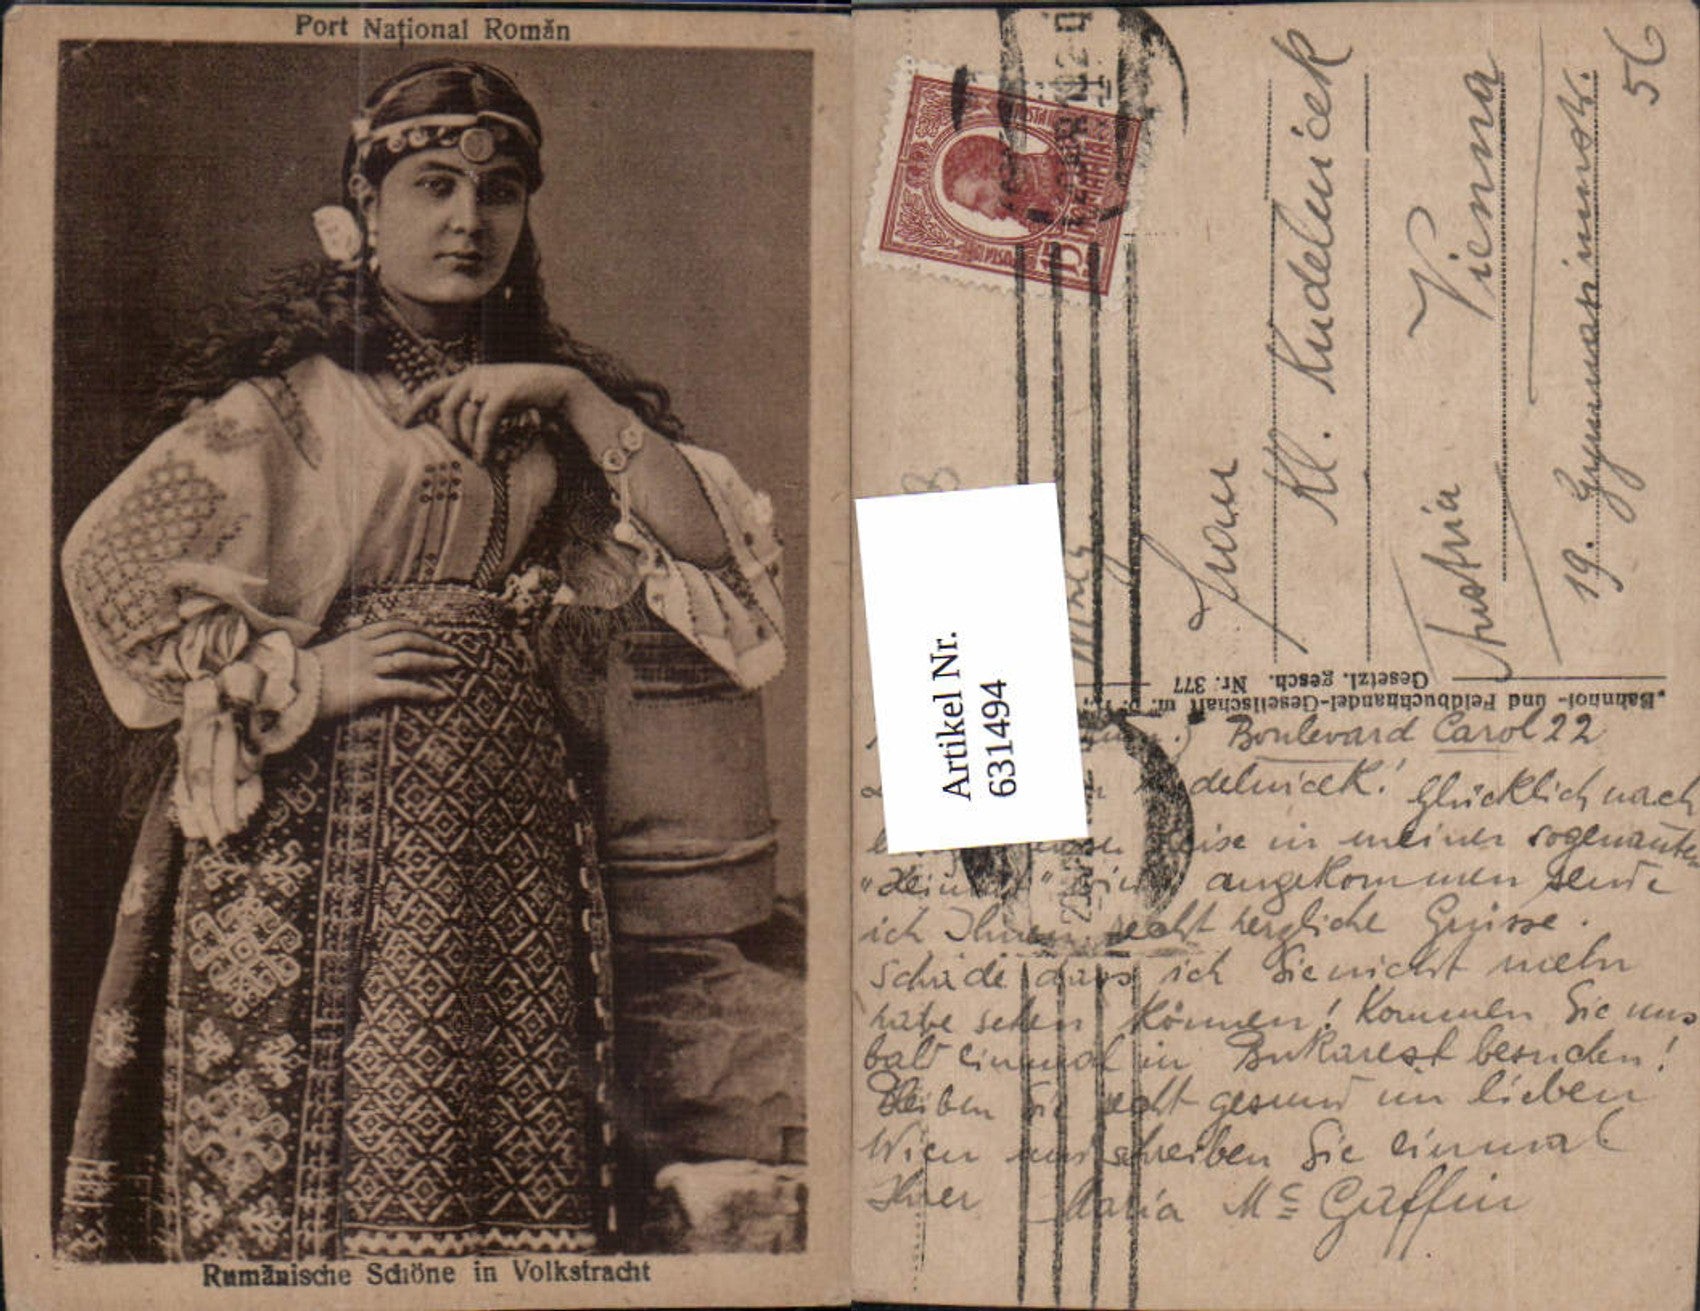 Port Național Român
Rumänische Schöne in Volkstracht
POSTA
ROMANIA
15
Artikel Nr.
631494
Frau
Kl. Kudelnicek
Austria Vienna
19. Gymnasiumstr.
56
"Bahnhof- und Feldbuchhandel-Gesellschaft m.
Gesetzl. gesch. Nr. 377
Boulevard Carol 22
delnicek! Glücklich nach
Reise in meiner sogenannten
"Heimat" angekommen sende
ich Ihnen recht herzliche Grüsse.
Schade dass ich Sie nicht mehr
habe sehen können! Kommen Sie uns
bald einmal in Bukarest besuchen!
Bleiben Sie recht gesund im lieben
Wien und schreiben Sie einmal
Ihrer Maria Mc Gaffin